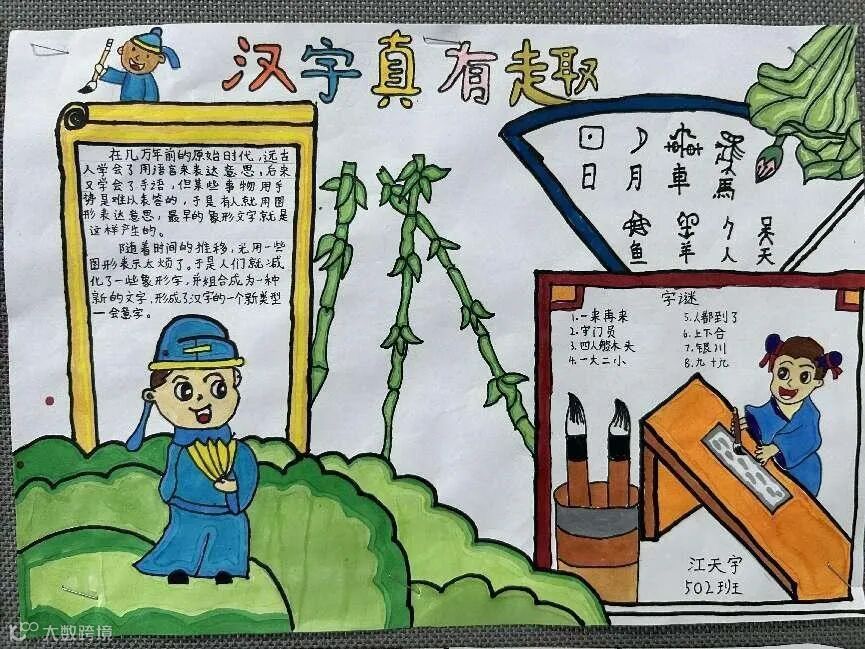 汉字真有趣
在几万年前的原始时代,远古
人学会了用语言来表达意思,后来
又学会了手语,但某些事物用手
势是难以表答的,于是有人就用图
形表达意思,最早的象形文字就是
这样产生的。
随着时间的推移,光用一些
图形表示太烦了。于是人们就减
化了一些象形字,并组合成为一种
新的文字,形成了汉字的一个新类型
一会意字。
日 月 車 馬
鱼 羊 人 天
字谜
1.一来再来
2.守门员
3.四人搬木头
4.一大二小
5.人都到了
6.上下合
7.银川
8.九十九
江天宇
502班
大数跨境